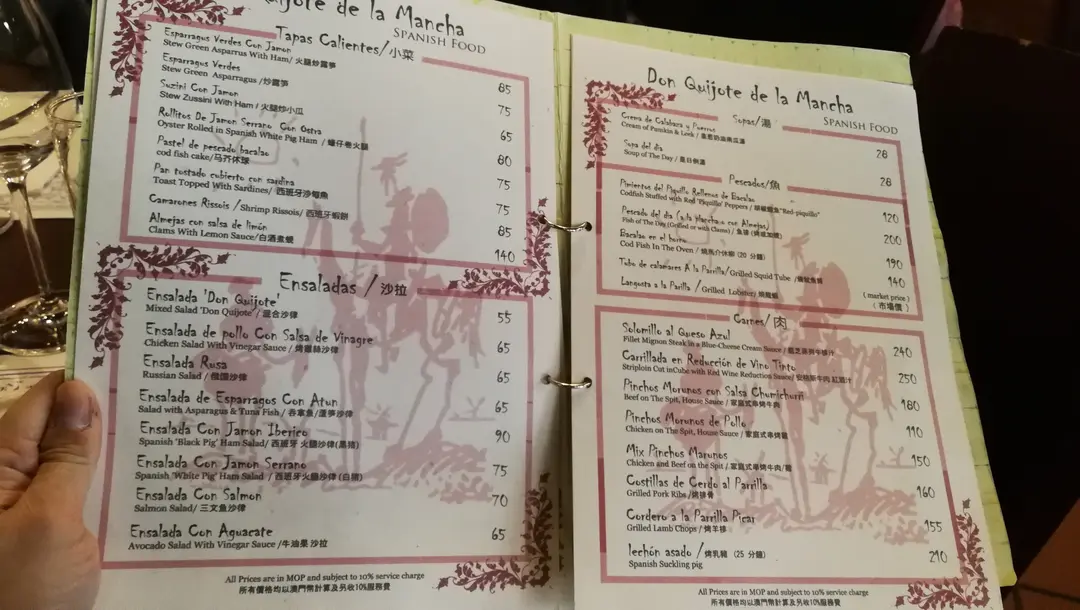 ijote de la Mancha
SPANISH FOOD
Tapas Calientes/小菜
Esparragos Verdes Con Jamon
Stew Green Asparrus With Ham/火腿炒露笋 85
Esparragos Verdes
Stew Green Asparragus /炒露笋 75
Suzini Con Jamon
Stew Zussini With Ham / 火腿炒小瓜 65
Rollitos De Jamon Serrano Con Ostra
Oyster Rolled in Spanish White Pig Ham / 蠔仔卷火腿 80
Pastel de pescado bacalao
cod fish cake/马芥休球 75
Pan tostado cubierto con sardina
Toast Topped With Sardines/ 西班牙沙甸魚 75
Camarones Rissois /Shrimp Rissois/ 西班牙蝦餅 85
Almejas con salsa de limón
Clams With Lemon Sauce/白酒煮蜆 140
Ensaladas / 沙拉
Ensalada 'Don Quijote'
Mixed Salad 'Don Quijote' / 混合沙律 55
Ensalada de pollo Con Salsa de Vinagre
Chicken Salad With Vinegar Sauce / 烤雞絲沙律 65
Ensalada Rusa
Russian Salad / 俄国沙律 65
Ensalada de Esparragos Con Atun
Salad with Asparagus & Tuna Fish / 吞拿魚/蘆筍沙律 65
Ensalada Con Jamon Iberico
Spanish 'Black Pig' Ham Salad/ 西班牙 火腿沙律(黑猪) 90
Ensalada Con Jamon Serrano
Spanish 'White Pig' Ham Salad / 西班牙火腿沙律 (白猪) 75
Ensalada Con Salmon
Salmon Salad/ 三文魚沙律 70
Ensalada Con Aguacate
Avocado Salad With Vinegar Sauce /牛油果 沙拉 65
All Prices are in MOP and subject to 10% service charge
所有價格均以澳門幣計算及另收10%服務費
Don Quijote de la Mancha
SPANISH FOOD
Sopas/湯
Crema de Calabaza y Puerros
Cream of Pumkin & Leek / 28
Sopa del dia
Soup of The Day / 是日例湯 28
Pescados/魚
Pimientos del Piquillo Rellenos de Bacalao
Codfish Stuffed with Red 'Piquillo' Peppers / "Red-piquillo" 120
Pescado del dia (a la plancha o con Almejas)
Fish of The Day (Grilled or with Clams) / 200
Bacalao en el horno
Cod Fish In The Oven / 焗馬介休柳 (20 分鐘) 190
Tubo de calamares A la Parrilla/Grilled Squid Tube 140
Langosta a la Parilla / Grilled Lobster/ (market price)
(市場價)
Carnes/ 肉
Solomillo al Queso Azul
Fillet Mignon Steak in a Blue-Cheese Cream Sauce / 240
Carrillada en Reducción de Vino Tinto
Striploin Cut inCube with Red Wine Reduction Sauce/ 安格斯牛肉 紅酒汁 250
Pinchos Morunos con Salsa Chumichurri
Beef on The Spit, House Sauce / 家庭式串烤牛肉 180
Pinchos Morunos de Pollo
Chicken on The Spit, House Sauce / 家庭式串烤雞 110
Mix Pinchos Marunos
Chicken and Beef on the Spit / 家庭式串烤牛肉/雞 150
Costillas de Cerdo al Parrilla
Grilled Pork Ribs /燒排骨 160
Cordero a la Parrilla Picar
Grilled Lamb Chops / 烤羊排 155
lechón asado / 烤乳豬 (25 分鐘)
Spanish Suckling pig 210
All Prices are in MOP and subject to 10% service charge
所有價格均以澳門幣計算及另收10%服務費